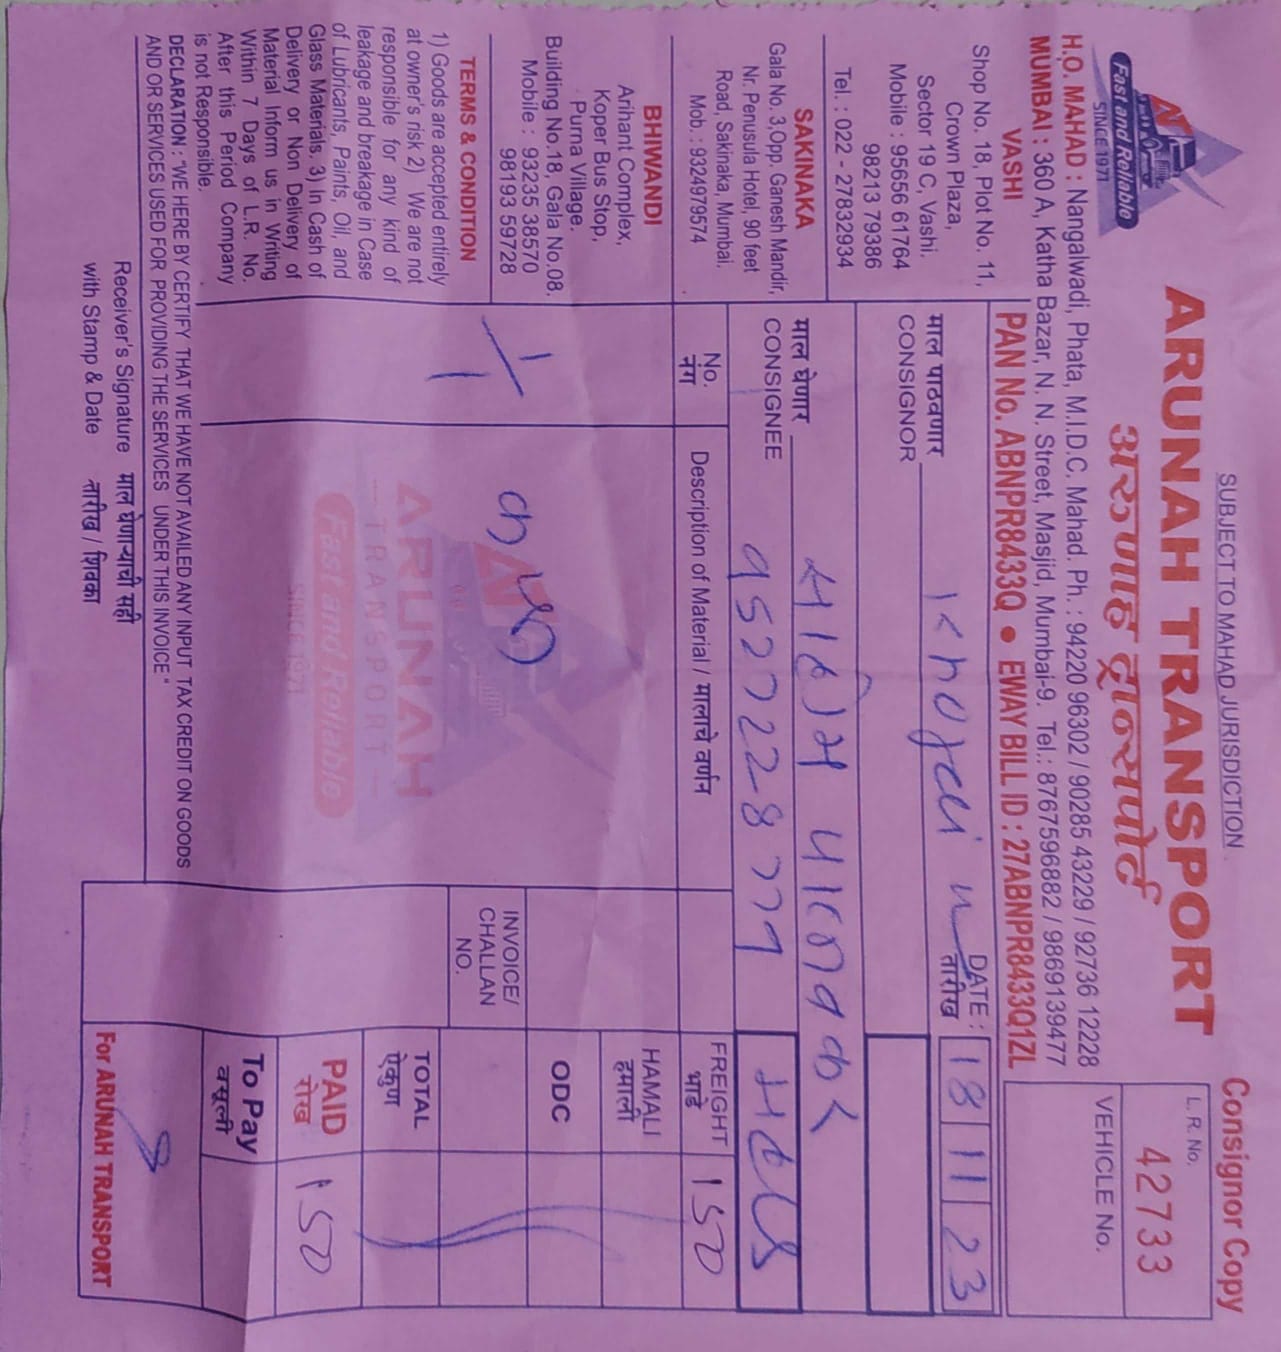 SUBJECT TO MAHAD JURISDICTION
Consignor Copy
ARUNAH TRANSPORT
अरुणाह ट्रान्सपोर्ट
Fast and Reliable
SINCE 1977
L. R. No.
42733
VEHICLE No.
H.O. MAHAD : Nangalwadi, Phata, M.I.D.C. Mahad. Ph. : 94220 96302 / 90285 43229 / 92736 12228
MUMBAI : 360 A, Katha Bazar, N. N. Street, Masjid, Mumbai-9. Tel.: 8767596882 / 9869139477
PAN No. ABNPR8433Q ● EWAY BILL ID : 27ABNPR8433Q1ZL
VASHI
Shop No. 18, Plot No. 11,
Crown Plaza,
Sector 19 C, Vashi.
Mobile : 95656 61764
98213 79386
Tel. : 022 - 27832934
SAKINAKA
Gala No. 3,Opp. Ganesh Mandir,
Nr. Penusula Hotel, 90 feet
Road, Sakinaka, Mumbai.
Mob. : 9324979574
BHIWANDI
Arihant Complex,
Koper Bus Stop,
Purna Village.
Building No.18, Gala No.08.
Mobile : 93235 38570
98193 59728
TERMS & CONDITION
1) Goods are accepted entirely
at owner's risk 2) We are not
responsible for any kind of
leakage and breakage in Case
of Lubricants, Paints, Oil, and
Glass Materials. 3) In Cash of
Delivery or Non Delivery of
Material Inform us in Writing
Within 7 Days of L.R. No.
After this Period Company
is not Responsible.
माल पाठवणार
CONSIGNOR
DATE :
तारीख
18 11 23
माल घेणार
CONSIGNEE
9527228779
No.
नंग
Description of Material / मालाचे वर्णन
1/1
ARUNAH
TRANSPORT
Fast and Reliable
FREIGHT
भाडे
150
HAMALI
हमाली
ODC
INVOICE/
CHALLAN
NO.
TOTAL
ऐकुण
PAID
रोख
150
To Pay
वसूली
DECLARATION : "WE HERE BY CERTIFY THAT WE HAVE NOT AVAILED ANY INPUT TAX CREDIT ON GOODS
AND OR SERVICES USED FOR PROVIDING THE SERVICES UNDER THIS INVOICE"
Receiver's Signature माल घेणाऱ्याची सही
with Stamp & Date तारीख / शिक्का
For ARUNAH TRANSPORT